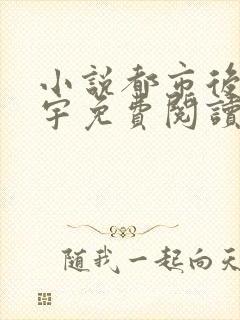 小說都市後
宇免費閱讀
随我一起向天